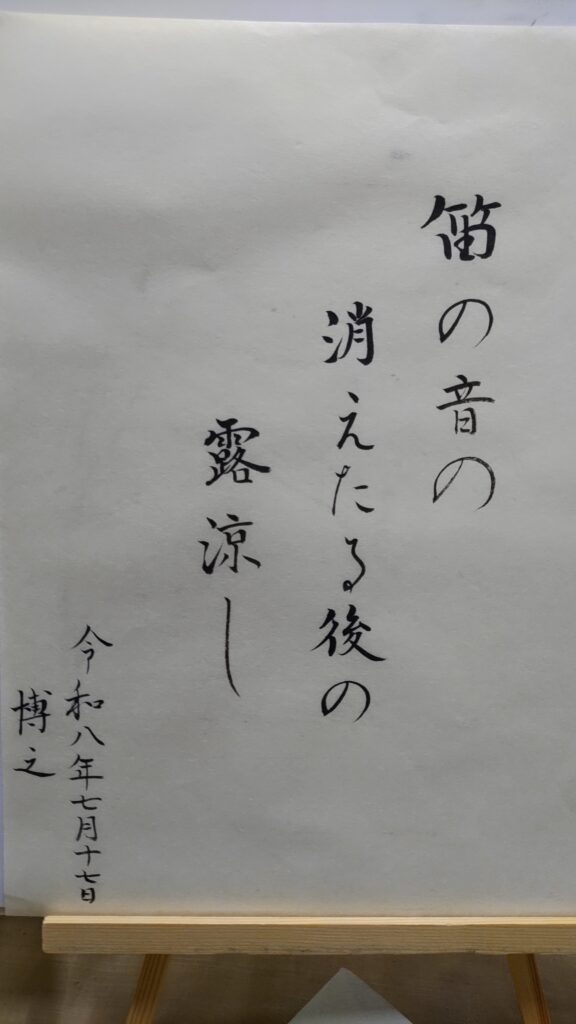 笛の音の
消えたる後の
露涼し
令和八年七月十七日
博之